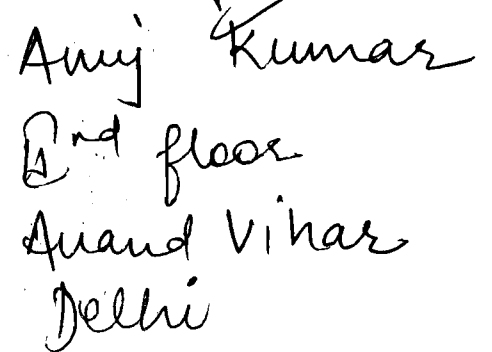 Anuj Kumar
floor
Anand Vihar
Delhi